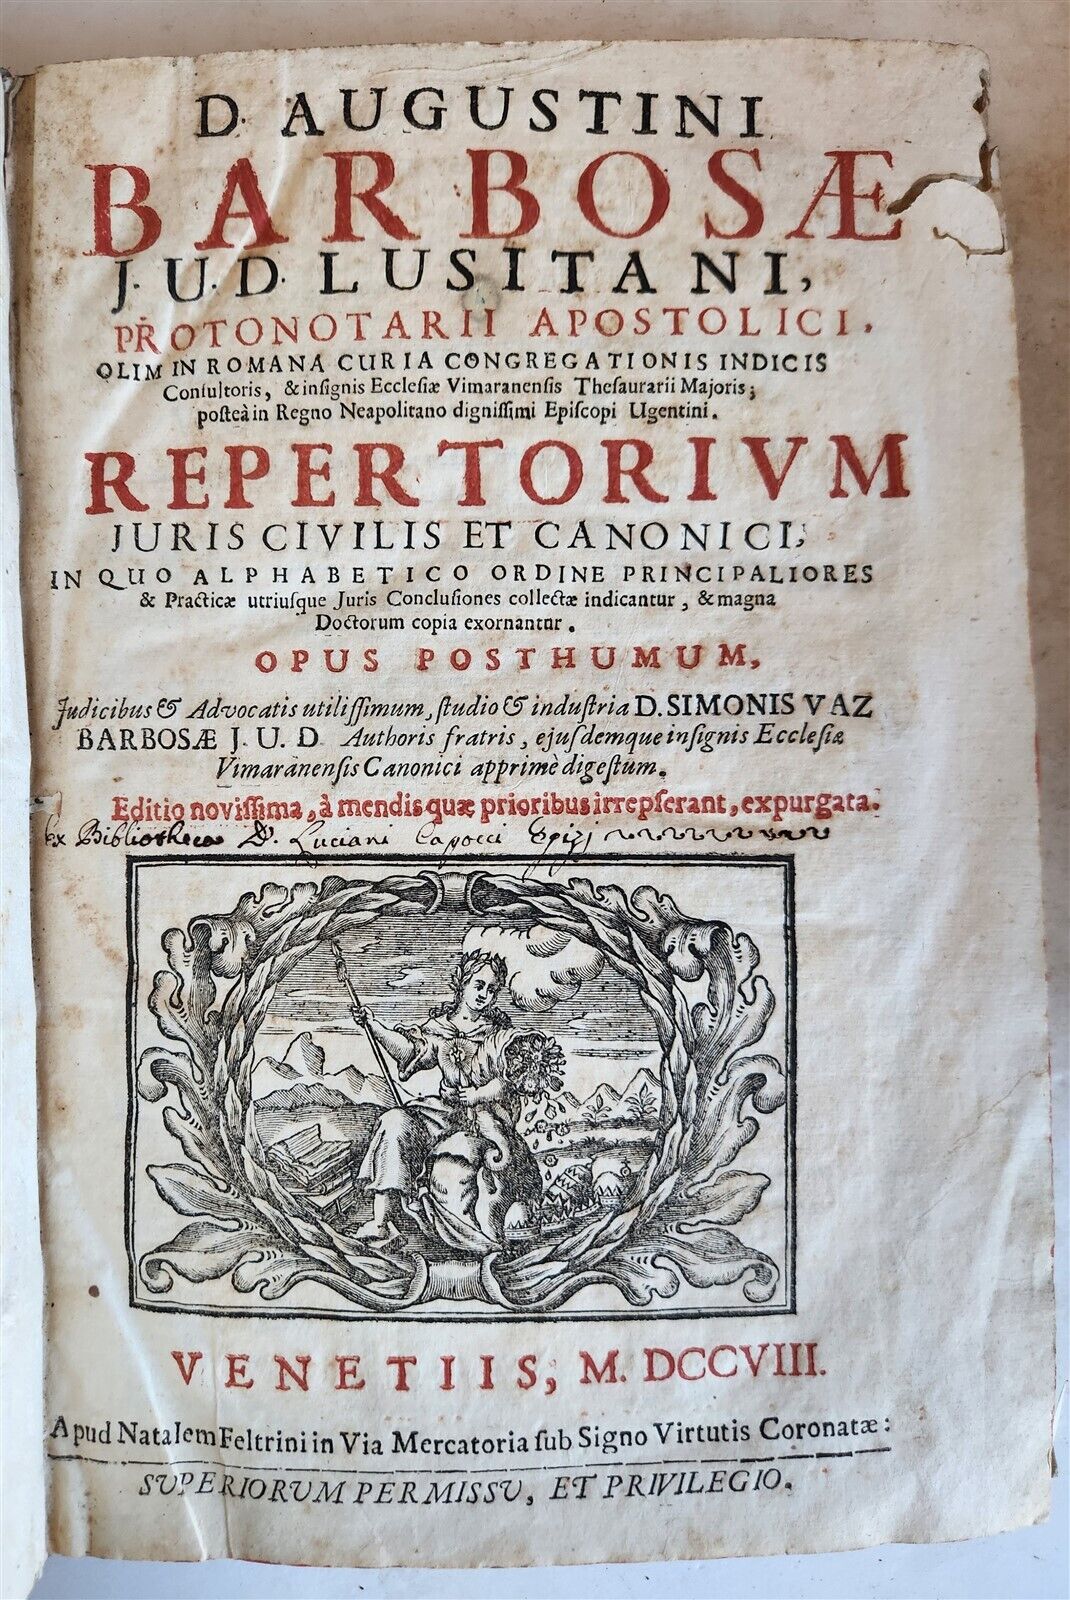 D. AUGUSTINI
BARBOSÆ
J. U. D. LUSITANI,
PROTONOTARII APOSTOLICI,
OLIM IN ROMANA CURIA CONGREGATIONIS INDICIS
Conſultoris, & inſignis Eccleſiæ Vimaranenſis Theſaurarii Majoris;
poſteà in Regno Neapolitano digniſſimi Epiſcopi Ugentini.
REPERTORIVM
JURIS CIVILIS ET CANONICI,
IN QUO ALPHABETICO ORDINE PRINCIPALIORES
& Practicæ utriuſque Juris Concluſiones collectæ indicantur, & magna
Doctorum copia exornantur.
OPUS POSTHUMUM,
Judicibus & Advocatis utiliſſimum, ſtudio & induſtria D. SIMONIS VAZ
BARBOSÆ J. U. D Authoris fratris, ejuſdemque inſignis Eccleſiæ
Vimaranenſis Canonici apprimè digeſtum.
Editio noviſſima, à mendis quæ prioribus irrepſerant, expurgata.
ex Bibliotheca D. Luciani Capocci
VENETIIS, M. DCCVIII.
Apud Natalem Feltrini in Via Mercatoria ſub Signo Virtutis Coronatæ:
SUPERIORUM PERMISSU, ET PRIVILEGIO.